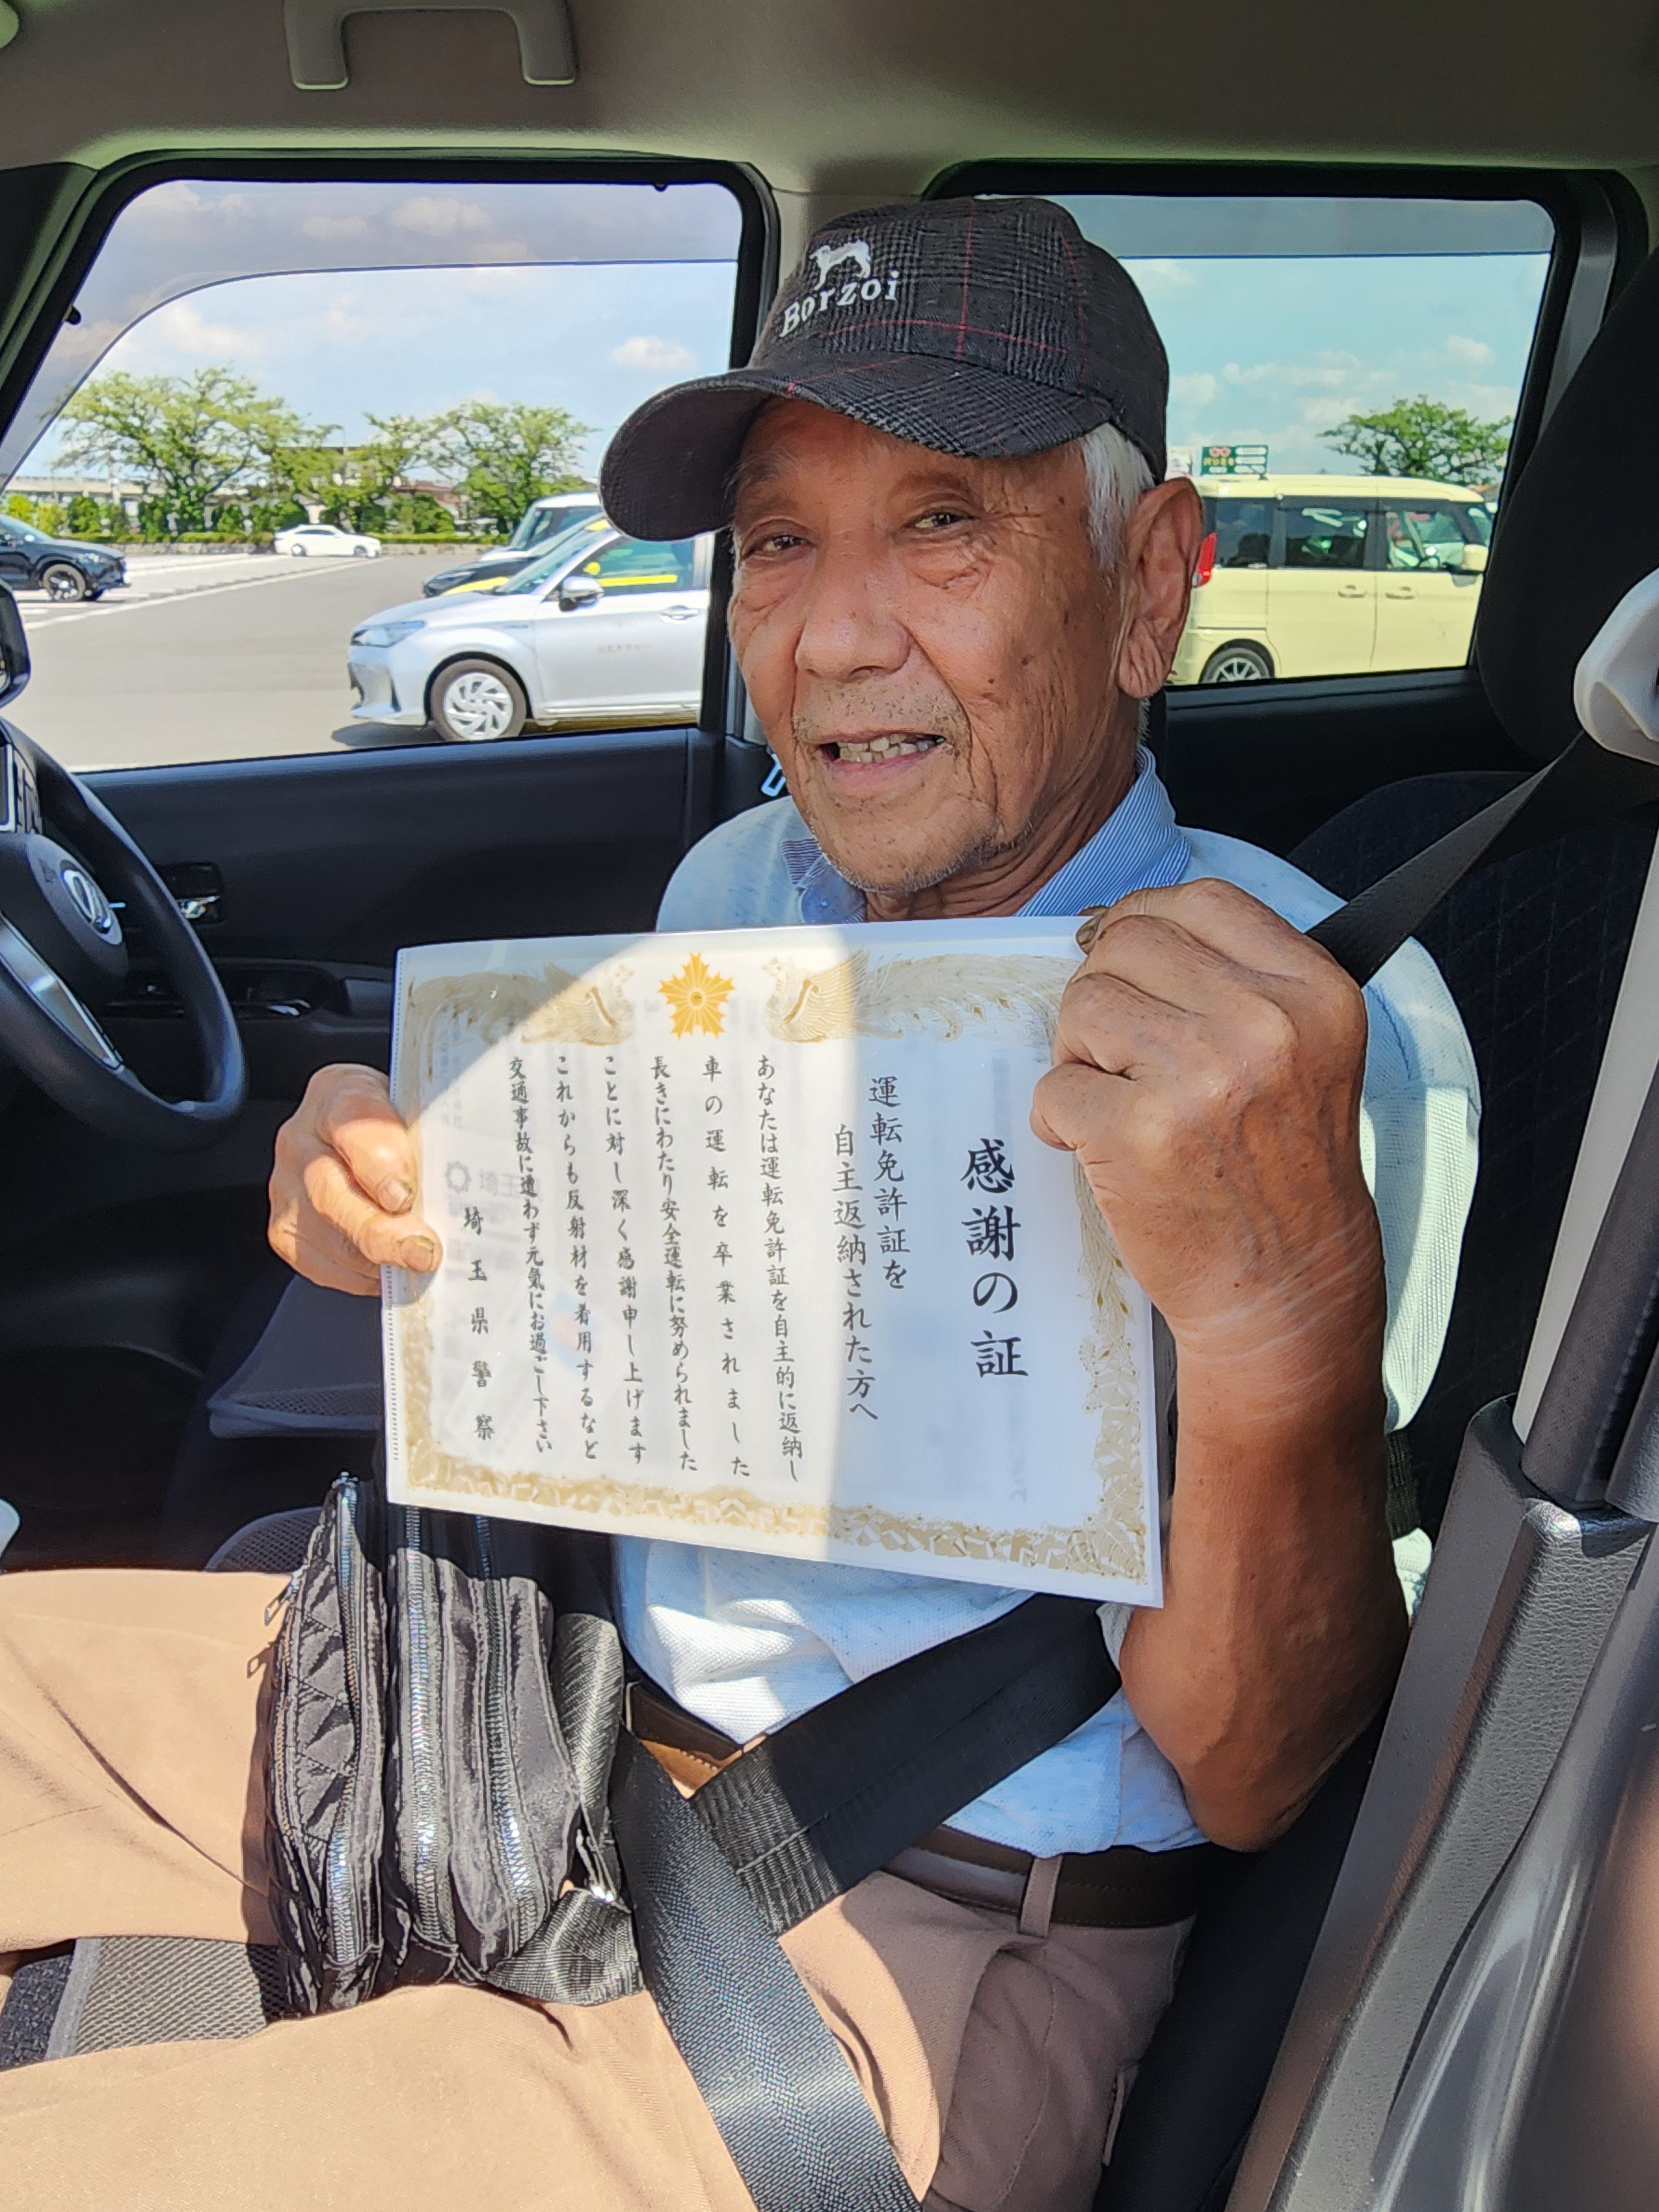 Borzoi
感謝の証
運転免許証を
自主返納された方へ
あなたは運転免許証を自主的に返納し
車の運転を卒業されました
長きにわたり安全運転に努められました
ことに対し深く感謝申し上げます
これからも反射材を着用するなど
交通事故に遭わず元気にお過ごし下さい
埼玉県警察
埼玉